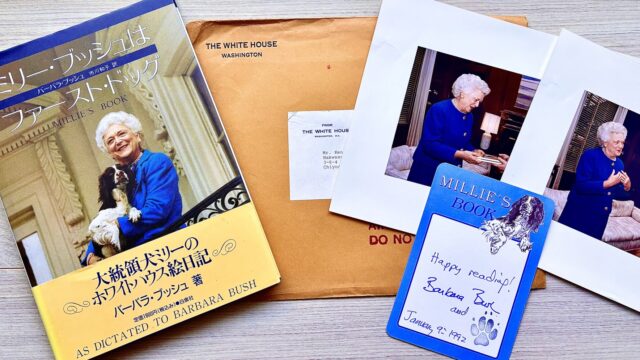 ミリー・ブッシュは
バーバラ・ブッシュ
ファースト・ドッグ
MILLIE'S BOOK
大統領犬ミリーの
ホワイトハウス絵日記
バーバラ・ブッシュ 著
AS DICTATED TO BARBARA BUSH
THE WHITE HOUSE
WASHINGTON
FROM
THE WHITE HOUSE
WASHINGTON, D.C.
Mr. Ken
Chiyod
DO NO
MILLIE'S
BOOK
Happy reading!
Barbara Bush
and
January 9th 1992